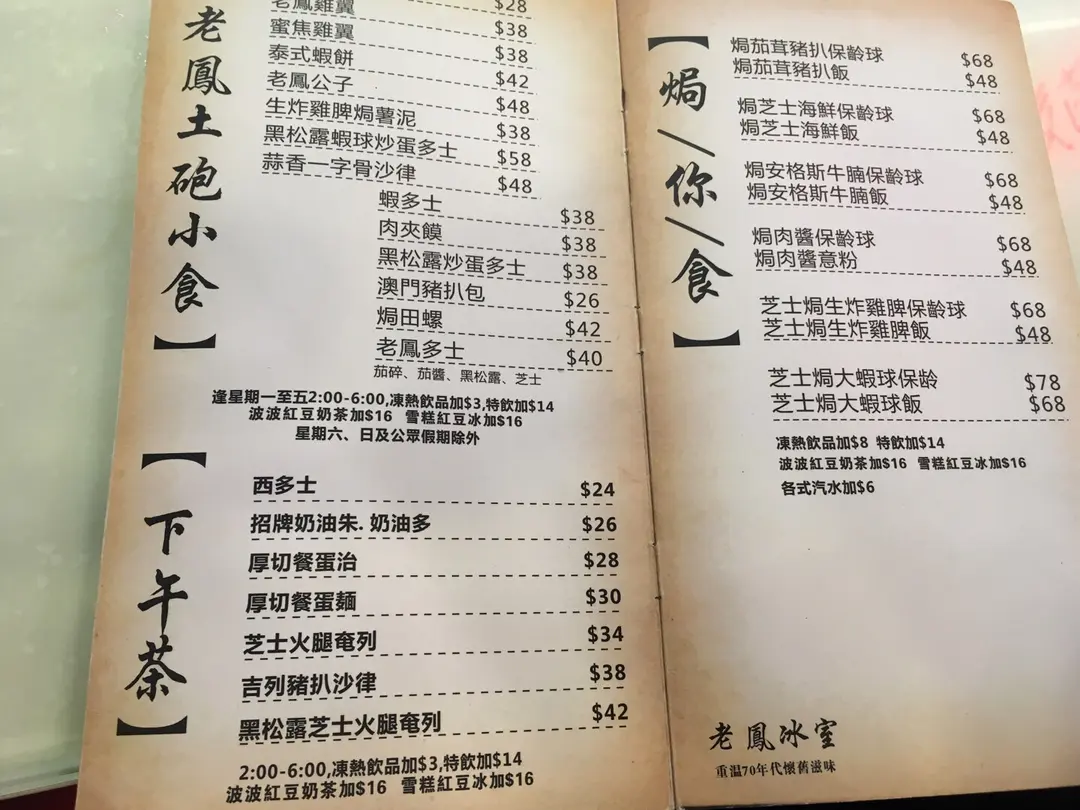 老鳳土砲小食】
老鳳雞翼 $28
蜜焦雞翼 $38
泰式蝦餅 $38
老鳳公子 $42
生炸雞脾焗薯泥 $48
黑松露蝦球炒蛋多士 $38
蒜香一字骨沙律 $58
$48
蝦多士 $38
肉夾饃 $38
黑松露炒蛋多士 $38
澳門豬扒包 $26
焗田螺 $42
老鳳多士 $40
茄碎、茄醬、黑松露、芝士
逢星期一至五2:00-6:00,凍熱飲品加$3,特飲加$14
波波紅豆奶茶加$16 雪糕紅豆冰加$16
星期六、日及公眾假期除外
【下午茶】
西多士 $24
招牌奶油朱. 奶油多 $26
厚切餐蛋治 $28
厚切餐蛋麵 $30
芝士火腿奄列 $34
吉列豬扒沙律 $38
黑松露芝士火腿奄列 $42
2:00-6:00,凍熱飲品加$3,特飲加$14
波波紅豆奶茶加$16 雪糕紅豆冰加$16
【焗/你/食】
焗茄茸豬扒保齡球 $68
焗茄茸豬扒飯 $48
焗芝士海鮮保齡球 $68
焗芝士海鮮飯 $48
焗安格斯牛腩保齡球 $68
焗安格斯牛腩飯 $48
焗肉醬保齡球 $68
焗肉醬意粉 $48
芝士焗生炸雞脾保齡球 $68
芝士焗生炸雞脾飯 $48
芝士焗大蝦球保齡 $78
芝士焗大蝦球飯 $68
凍熱飲品加$8 特飲加$14
波波紅豆奶茶加$16 雪糕紅豆冰加$16
各式汽水加$6
老鳳冰室
重温70年代懷舊滋味